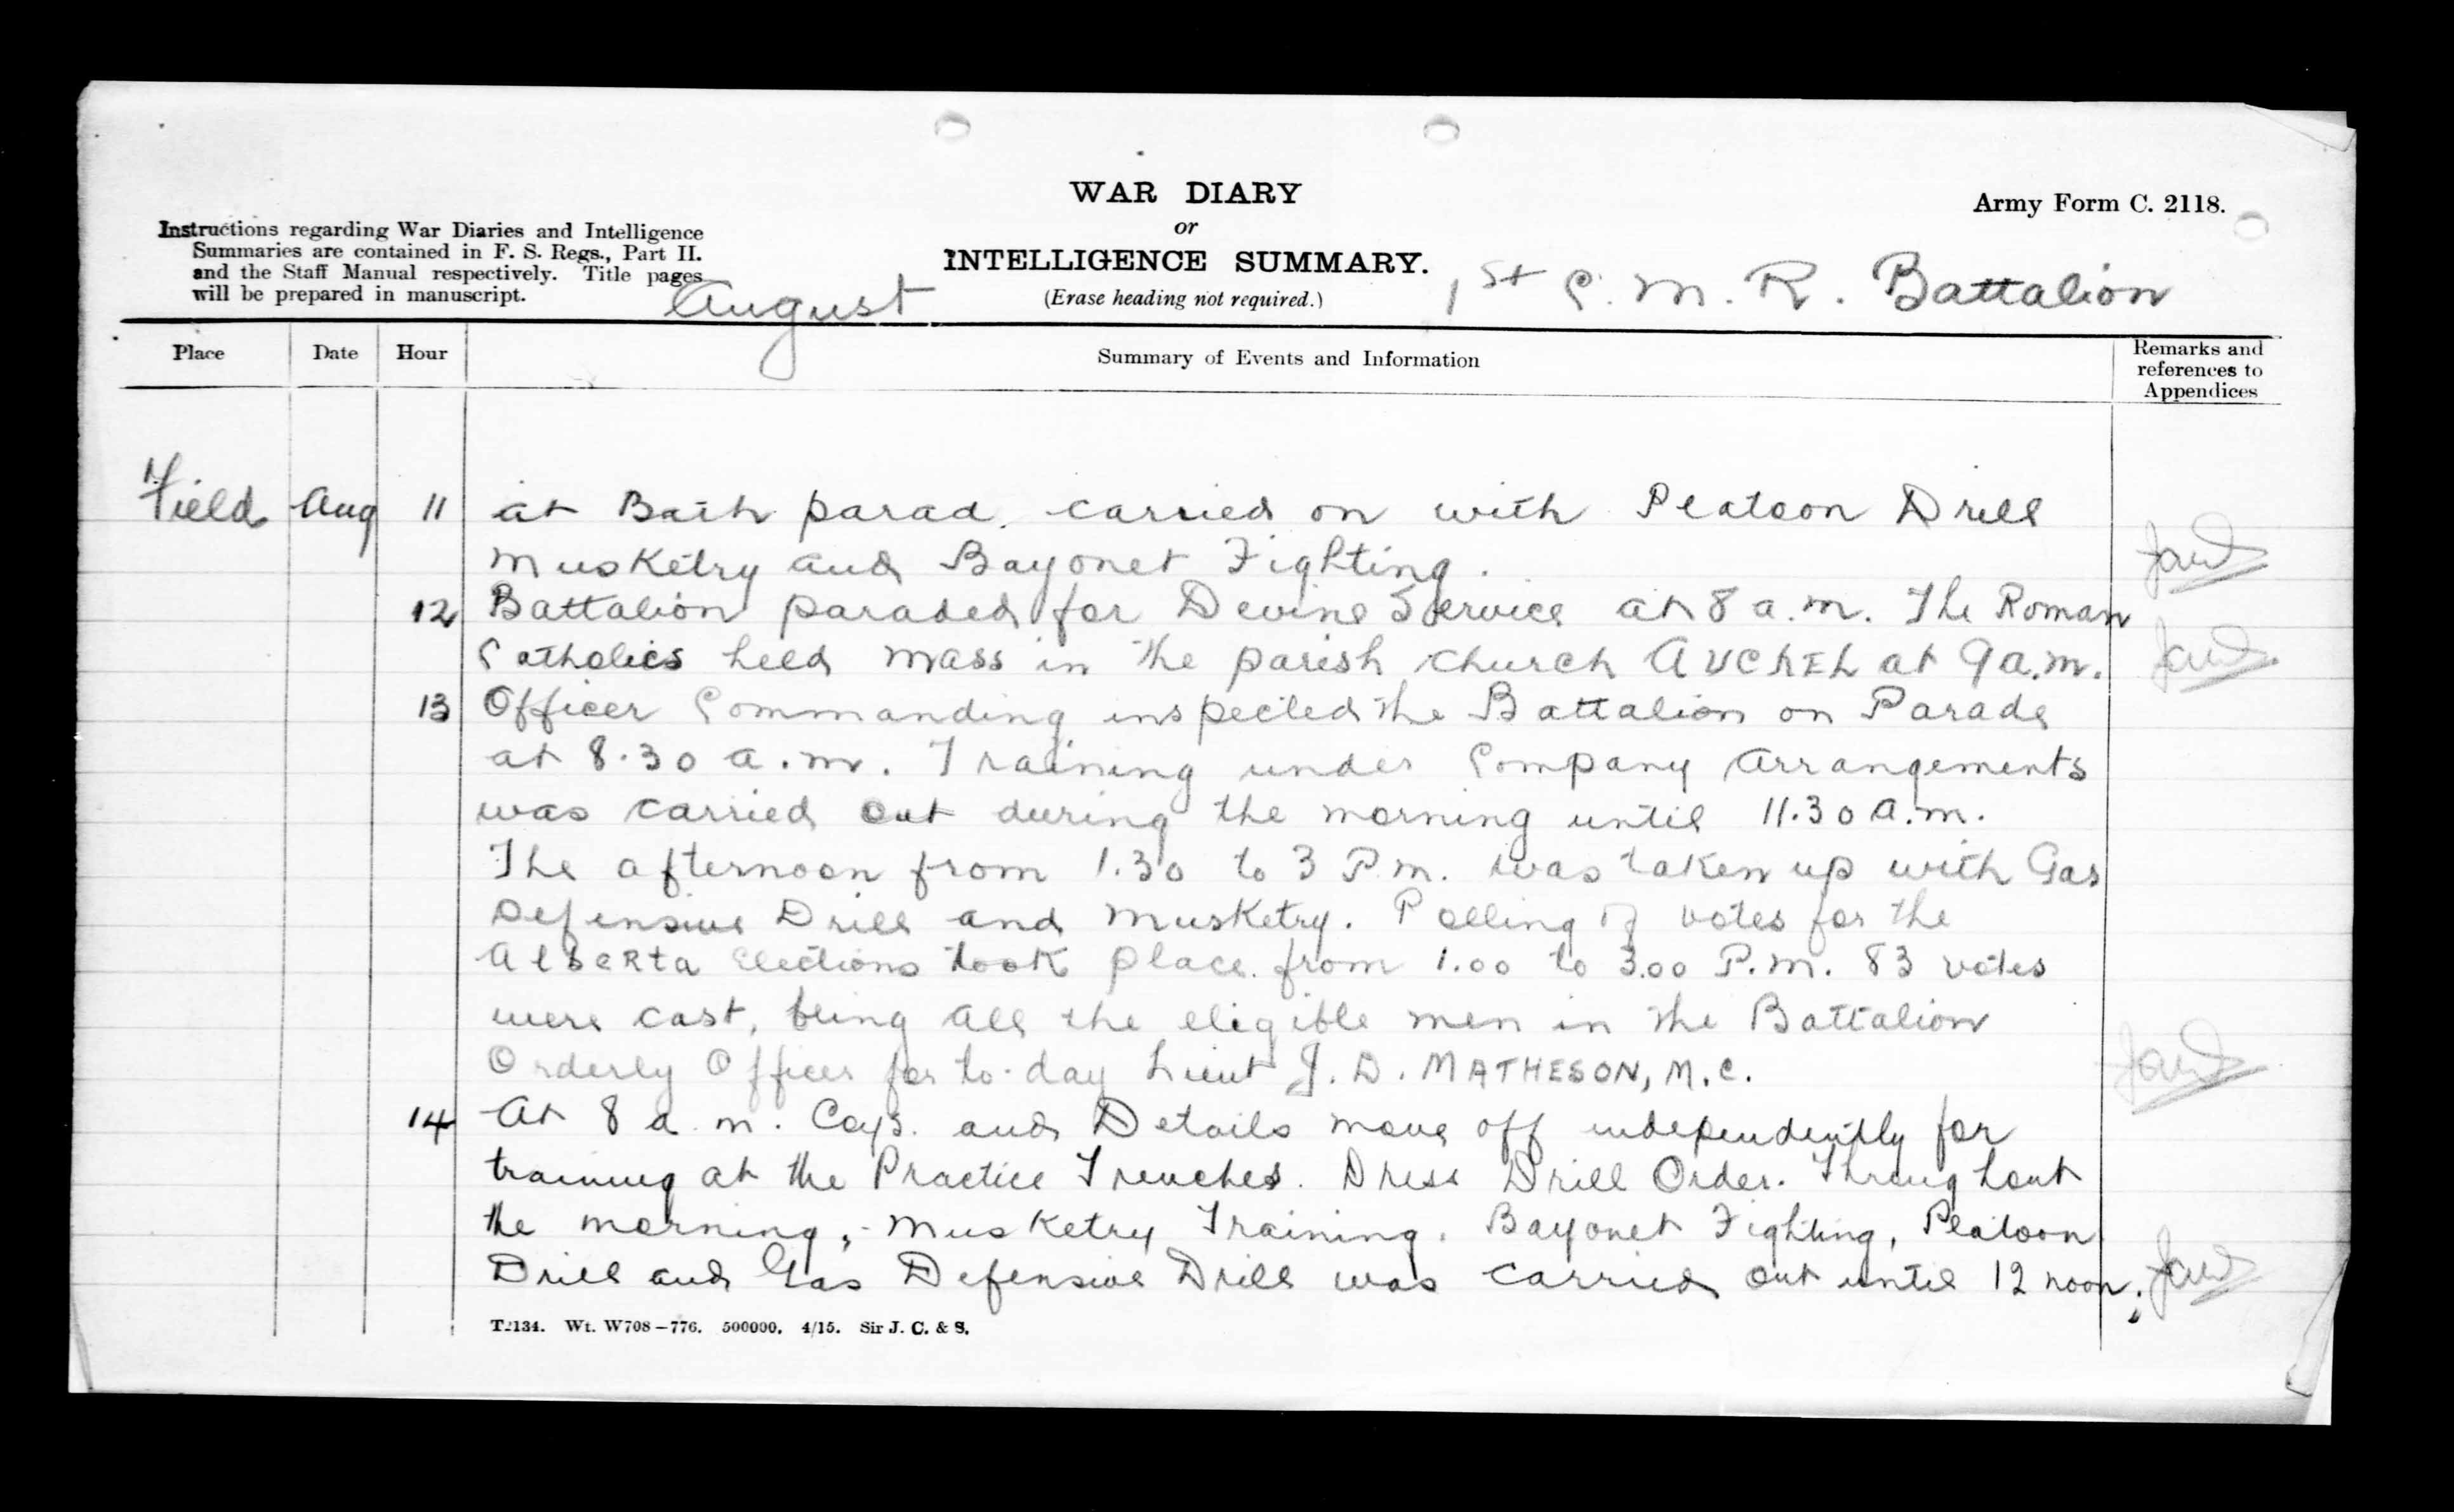 WAR DIARY
or
INTELLIGENCE SUMMARY.
(Erase heading not required.)
Army Form C. 2118.
Instructions regarding War Diaries and Intelligence
Summaries are contained in F. S. Regs., Part II.
and the Staff Manual respectively. Title pages
will be prepared in manuscript.
August
1st C. M. R. Battalion
Place Date Hour Summary of Events and Information Remarks and references to Appendices
Field Aug 11 at Bath parad. carried on with Platoon Drill
Musketry and Bayonet Fighting.
12 Battalion paraded for Devine Service at 8 a.m. The Roman
Catholics held Mass in the parish church AUCHEL at 9 a.m.
13 Officer Commanding inspected the Battalion on Parade
at 8.30 a.m. Training under Company Arrangements
was carried out during the morning until 11.30 a.m.
The afternoon from 1.30 to 3 P.m. was taken up with Gas
Defensive Drill and Musketry. Polling of votes for the
Alberta Elections took place from 1.00 to 3.00 P.m. 83 votes
were cast, being all the eligible men in the Battalion
Orderly Officer for to-day Lieut J. D. MATHESON, M.C.
14 At 8 a.m. Coys. and Details move off independently for
training at the Practice Trenches. Dress Drill Order. Throughout
the morning, - Musketry Training, Bayonet Fighting, Platoon
Drill and Gas Defensive Drill was carried out until 12 noon.
T.134. Wt. W708-776. 500000. 4/15. Sir J. C. & S.